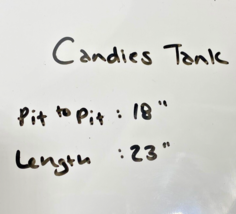 Candies Tank
Pit to Pit : 18"
Length : 23"